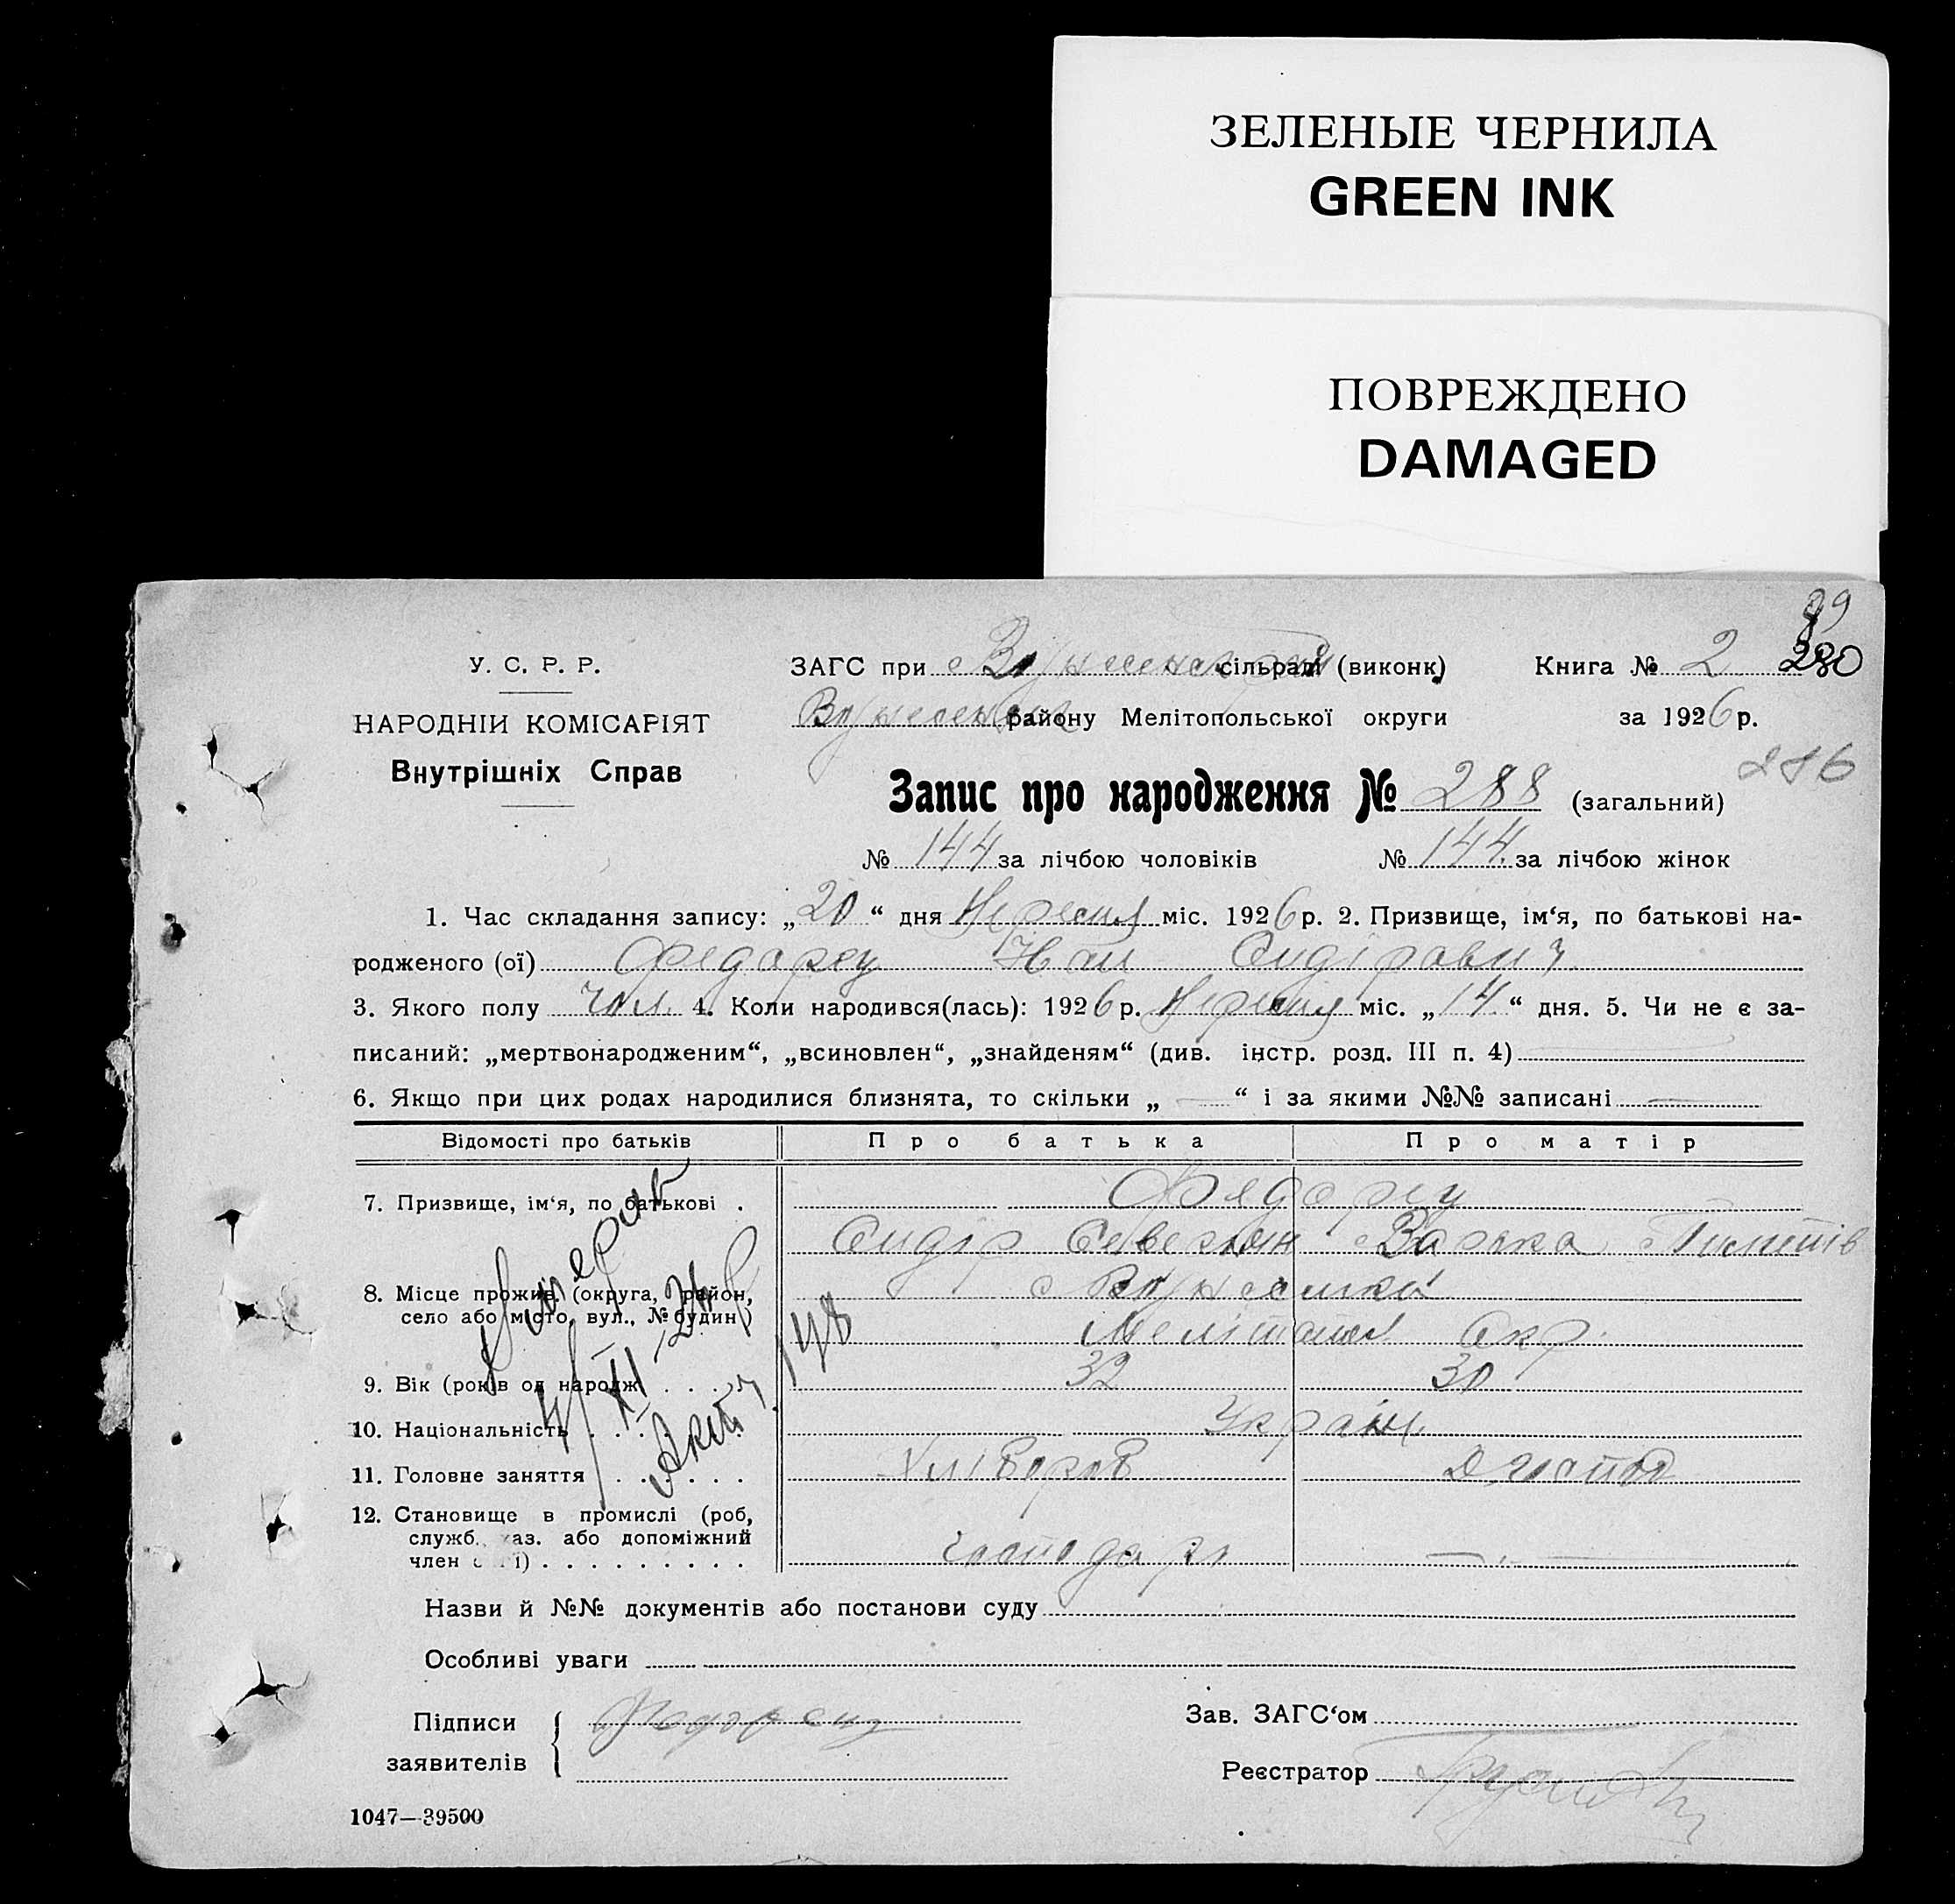 ЗЕЛЕНЫЕ ЧЕРНИЛА
GREEN INK
ПОВРЕЖДЕНО
DAMAGED
89
У. С. Р. Р. ЗАГС при сільраді (виконк) Книга № 2 280
НАРОДНІЙ КОМІСАРІЯТ району Мелітопольської округи за 1926 р.
Внутрішніх Справ
286
Запис про народження № 288 (загальний)
№ 144 за лічбою чоловіків № 144 за лічбою жінок
1. Час складання запису: „20“ дня Вересня міс. 1926 р. 2. Призвище, ім‘я, по батькові на-
родженого (ої) Федорец Сидірович
3. Якого полу чол. 4. Коли народився(лась): 1926 р. Вересня міс. „14“ дня. 5. Чи не є за-
писаний: „мертвонародженим“, „всиновлен“, „знайденям“ (див. інстр. розд. III п. 4) —
6. Якщо при цих родах народилися близнята, то скільки „ — “ і за якими №№ записані —
Відомості про батьків Про батька Про матір
7. Призвище, ім‘я, по батькові . Федорец
Сидір
8. Місце прожив. (округа, район,
село або місто, вул., № будин.) Окр.
9. Вік (років од народж. . . . . 32 30
10. Національність . . . Україн.
11. Головне заняття . . . . . . Хлібороб
12. Становище в промислі (роб,
служб. аз. або допоміжний
член с ї) . . . . . . . . . господар —
Умер
4/XI-26 р
Акт 148
Назви й №№ документів або постанови суду
Особливі уваги
Підписи заявителів Федорец
Зав. ЗАГС‘ом
Реєстратор
1047—39500